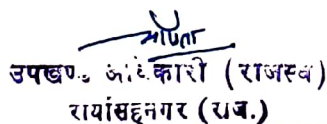 उपखण्ड अधिकारी (राजस्व)
रायसिंहनगर (राज.)